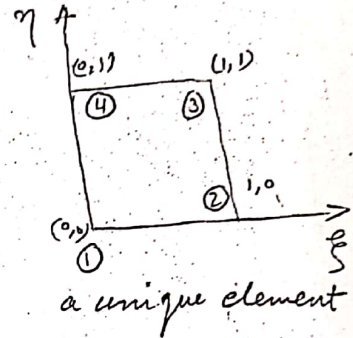 η
(0,1) (1,1)
④ ③
② 1,0
(0,0)
①
ξ
a unique element